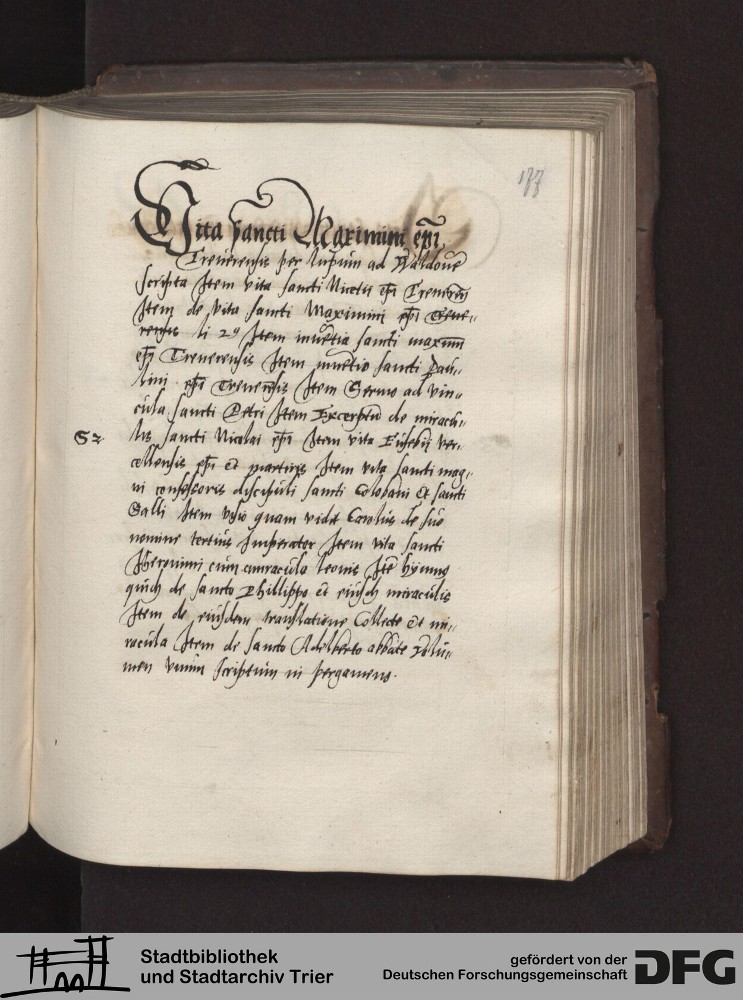 177
Vita sancti Maximini epi
Treuerensis per lupum ad Waldonē
scripta Item vita sancti Nicetii epi Treuerēn
Item de vita sancti Maximini epi Treue-
rensis li 29 Item inuētia sancti maximi
epi Treuerensis Item inuētio sancti Pau-
lini epi Treuerēsis Item Sermo ad vin-
cula sancti Petri Item Excerptū de miracu-
lis sancti Nicolai epi Item vita Eusebij ver-
S 2
cellensis epi et martiris Item vita sancti mag-
ni confessoris discipuli sancti Colobani et sancti
Galli Item visio quam vidit Carolus de suo
nomine tertius Imperator Item vita sancti
Hieronimi cum miracula leonis Itē hymnus
de sancto Phillippo et eiusdē miraculis
Item de eiusdem translatione Collecte et mi-
racula Item de sancto Adelberto abbate Volu-
men vnum scriptum in pergameno.
Stadtbibliothek
und Stadtarchiv Trier
gefördert von der
Deutschen Forschungsgemeinschaft
DFG